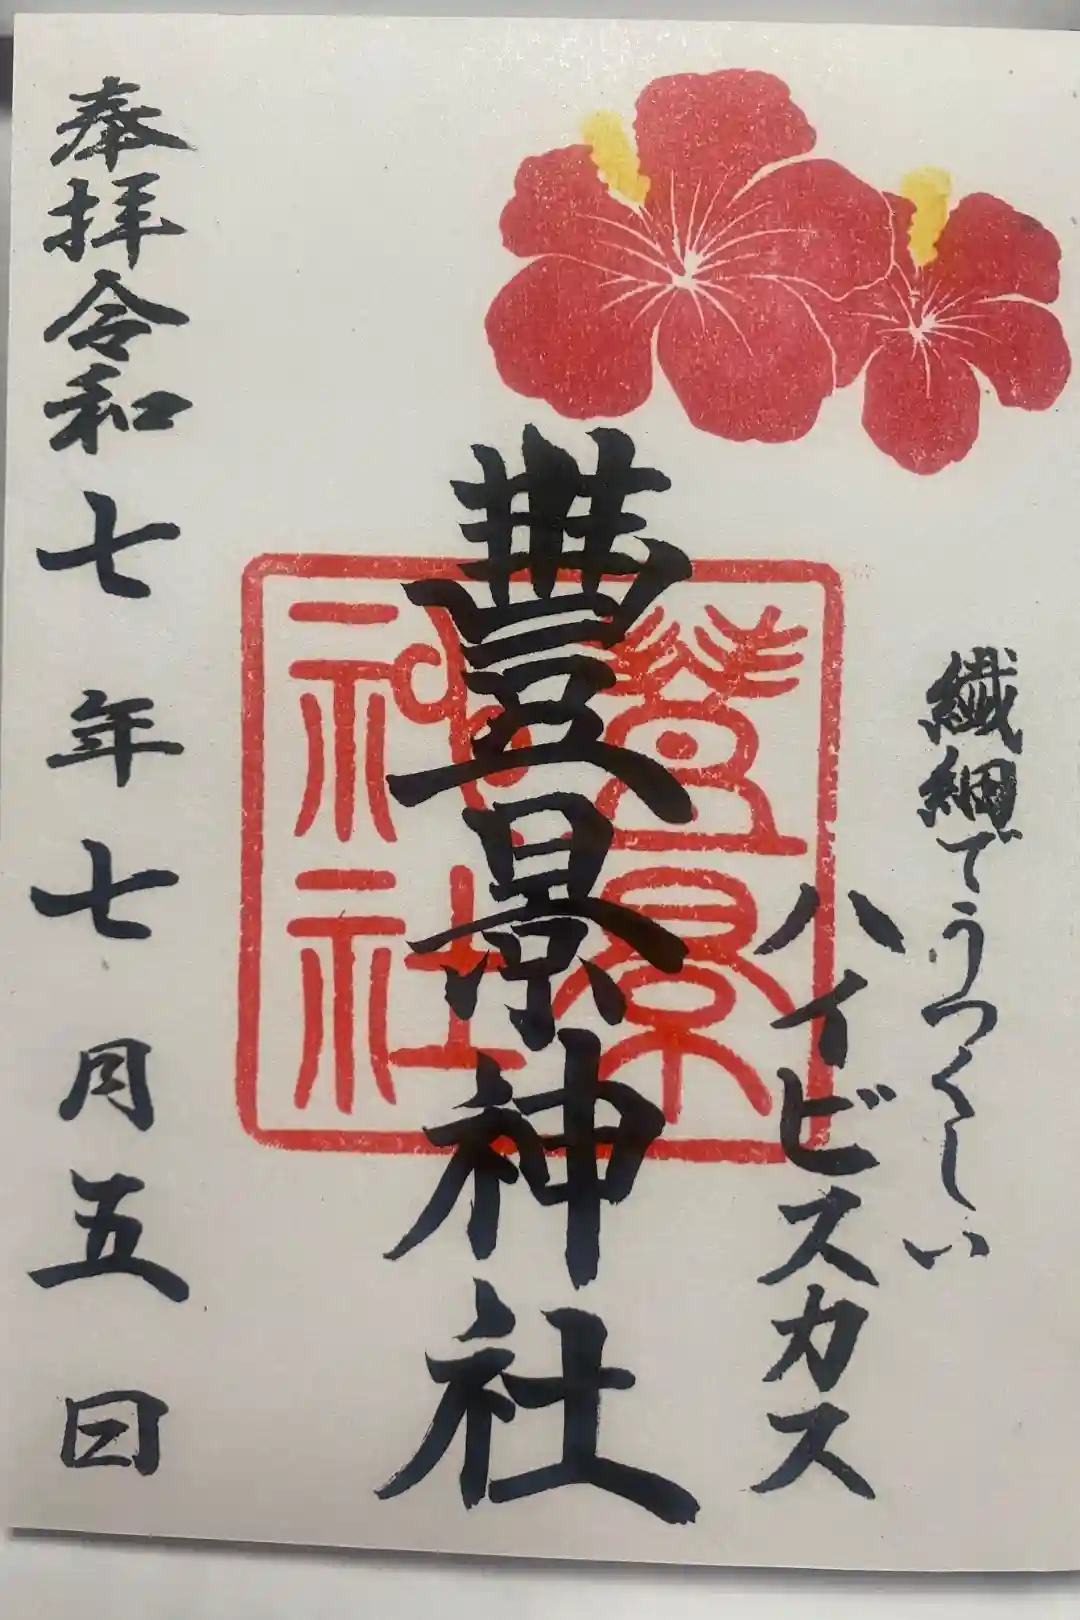 繊細でうつくしい
ハイビスカス
豊景神社
豊景神社
奉拝令和七年七月五日